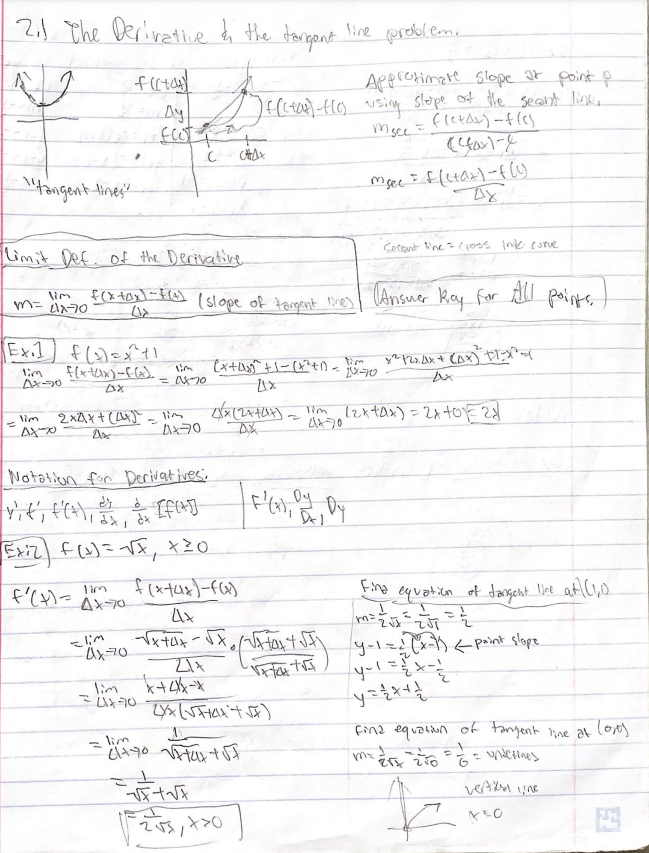 2.1 The Derivative & the tangent line problem.
f(c+Δx)
Δy
f(c)
f(c+Δx)-f(c)
c c+Δx
"tangent lines"
Approximate slope at point p
using slope of the secant line.
msec = f(c+Δx)-f(c) / (c+Δx)-c
msec = f(c+Δx)-f(c) / Δx
Secant line = cross into curve
Limit Def. of the Derivative
m= lim Δx→0 f(x+Δx)-f(x) / Δx (slope of tangent line)
(Answer Key for All points.)
Ex.1 f(x)=x²+1
lim Δx→0 f(x+Δx)-f(x) / Δx = lim Δx→0 (x+Δx)²+1-(x²+1) / Δx = lim Δx→0 x²+2xΔx+(Δx)²+1-x²-1 / Δx
= lim Δx→0 2xΔx+(Δx)² / Δx = lim Δx→0 Δx(2x+Δx) / Δx = lim Δx→0 (2x+Δx) = 2x+0 = 2x
Notation for Derivatives:
y', f', f'(x), dy/dx, d/dx [f(x)] F'(x), Dy/Dx, Dy
Ex:2 f(x)=√x, x≥0
F'(x)= lim Δx→0 f(x+Δx)-f(x) / Δx
= lim Δx→0 √x+Δx - √x / Δx · (√x+Δx + √x / √x+Δx + √x)
= lim Δx→0 x+Δx-x / Δx(√x+Δx + √x)
= lim Δx→0 1 / √x+Δx + √x
= 1 / √x+√x
= 1 / 2√x, x>0
Find equation of tangent line at (1,1)
m= 1/2√x = 1/2√1 = 1/2
y-1 = 1/2(x-1) ← point slope
y-1 = 1/2x - 1/2
y = 1/2x + 1/2
Find equation of tangent line at (0,0)
m= 1/2√x = 1/2√0 = 1/0 = undefined
vertical line
x=0